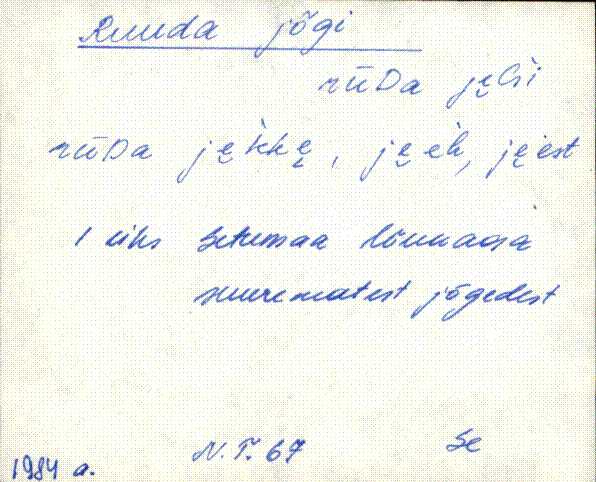 Ruuda jõgi
rūDa ję̮Gi
rūDa ję̮kkę̮, ję̮eh, ję̮est
/ üks Setumaa lõunaosa
suurematest jõgedest
N. T. 67 Se
1984 a.